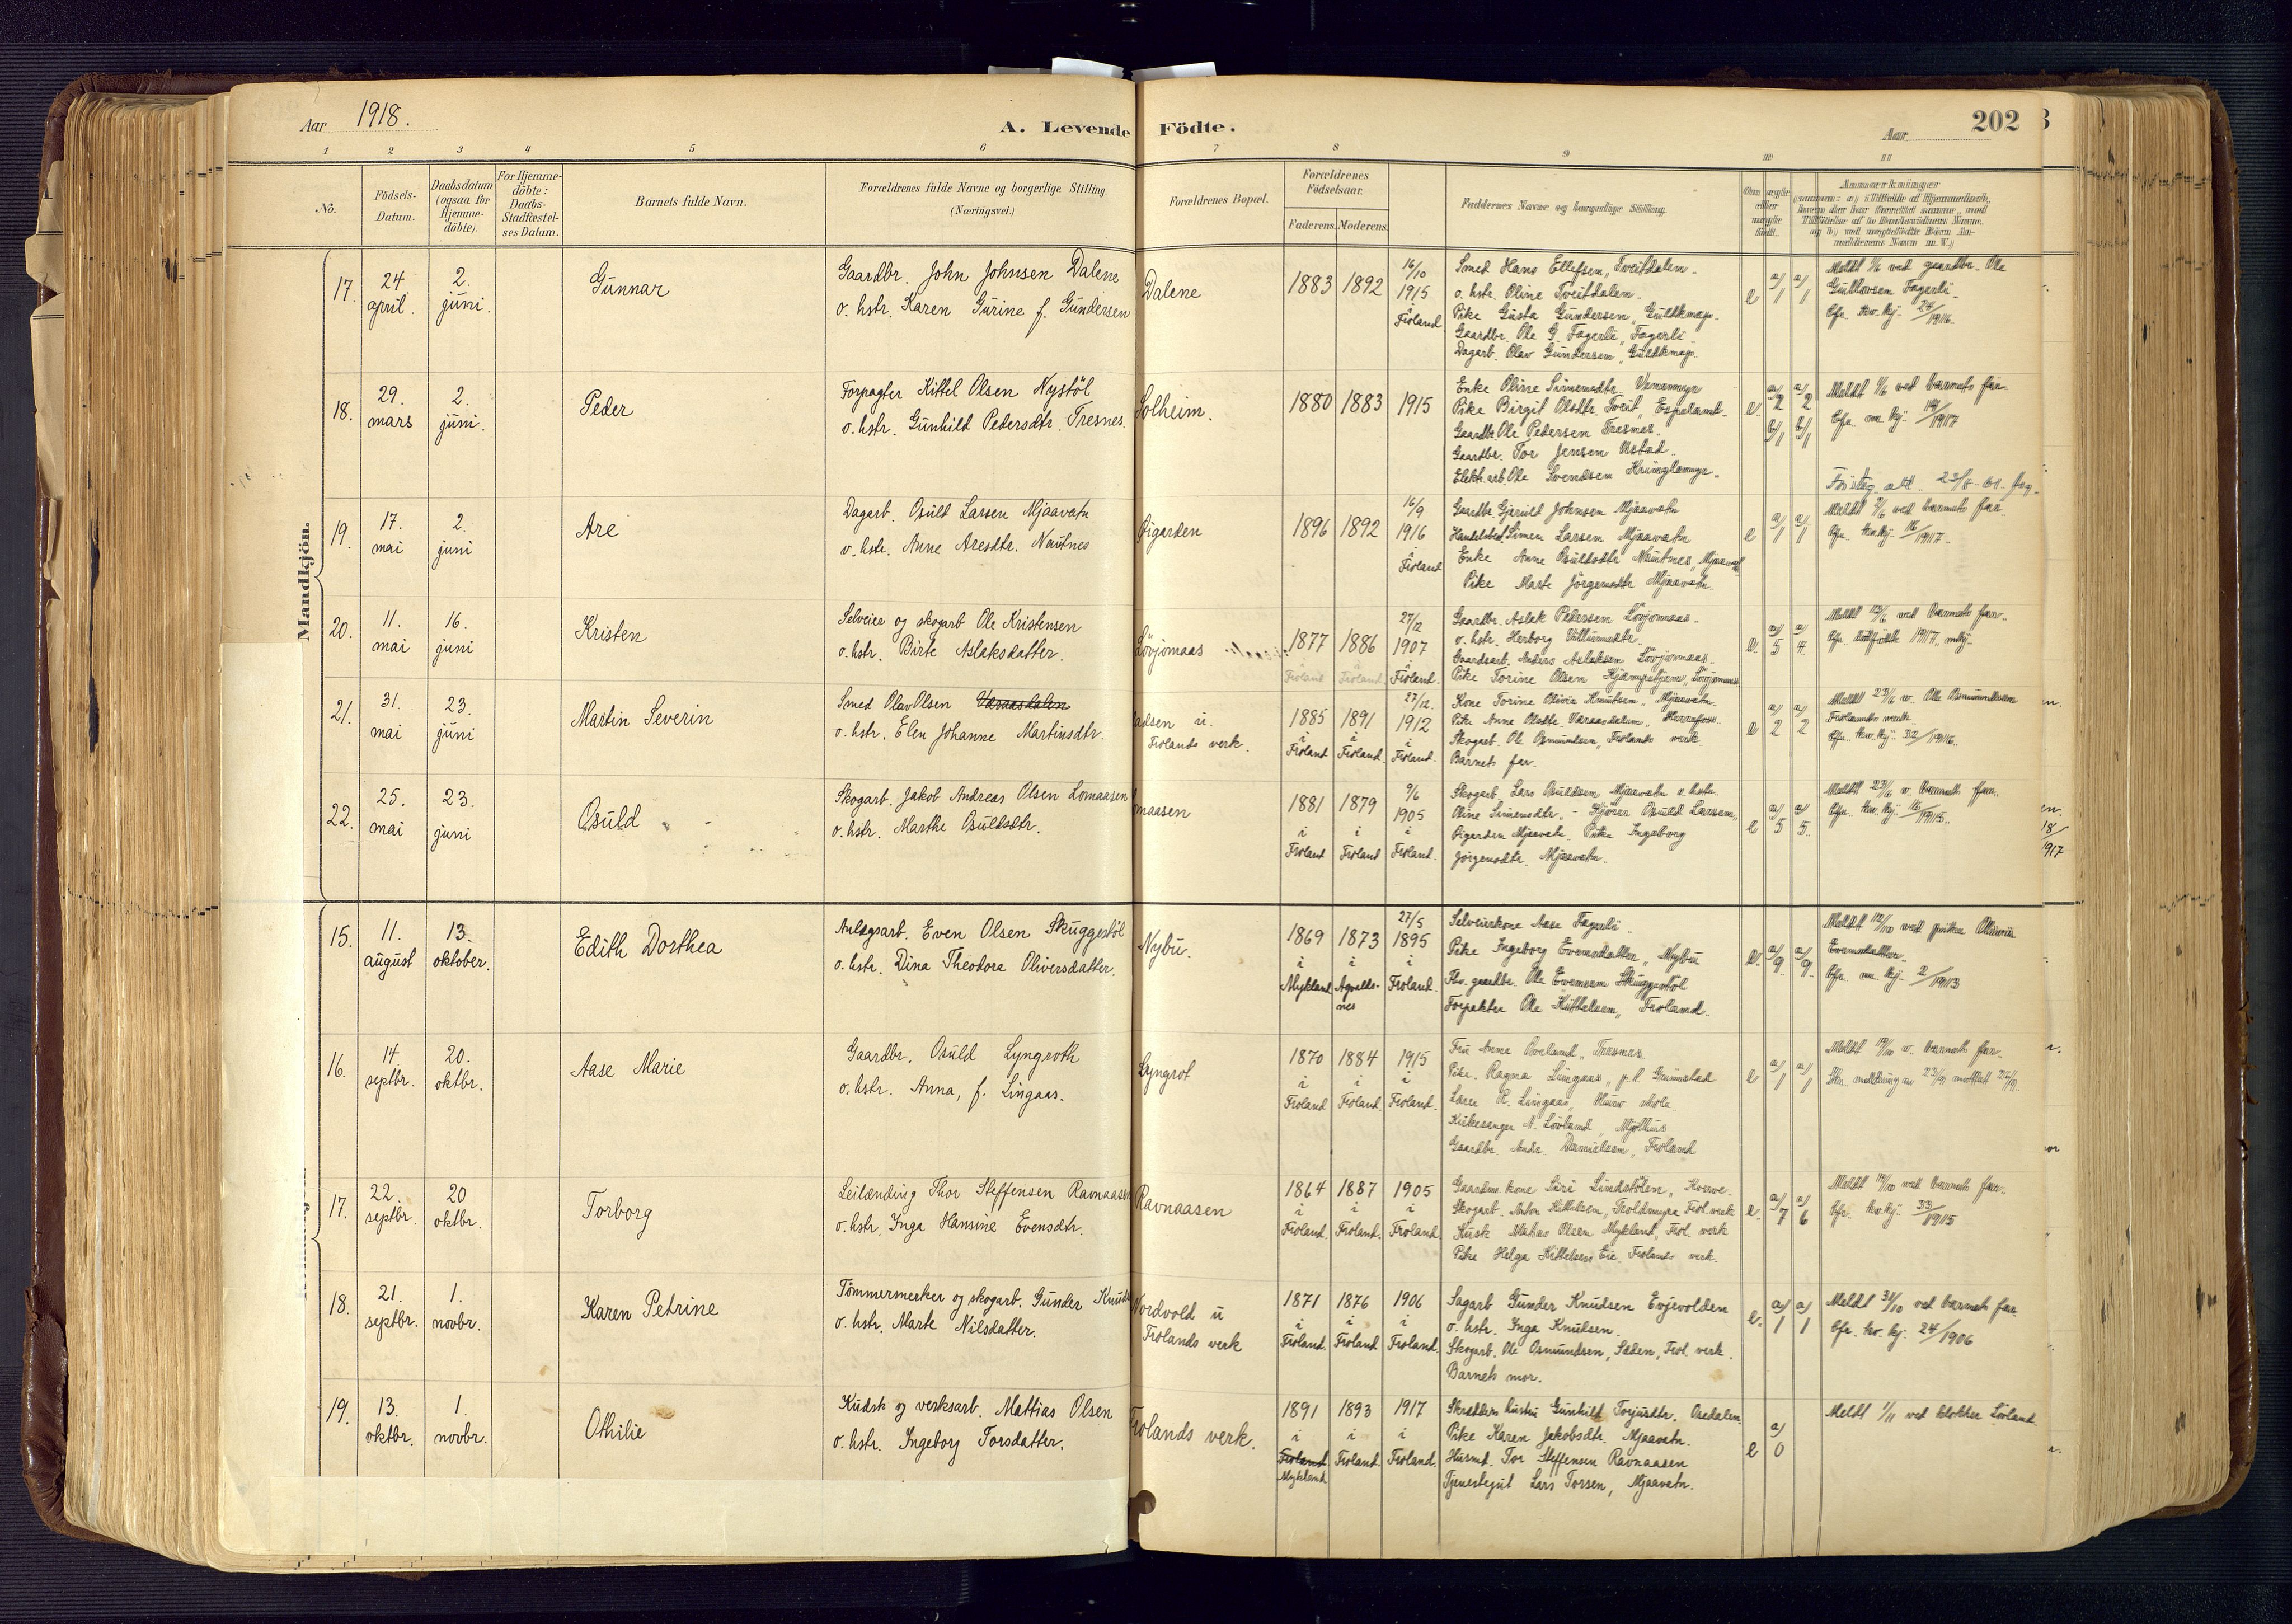 Aar 1918.
A. Levende Födte.
Aar
202
1 2 3 4 5 6 7 8 9 10 11
No.
Födsels-Datum.
Daabsdatum (ogsaa for Hjemme-döbte).
For Hjemme-döbte: Daabs-Stadfæstel-ses Datum.
Barnets fulde Navn.
Forældrenes fulde Navne og borgerlige Stilling. (Næringsvei.)
Forældrenes Bopæl.
Forældrenes Födselsaar.
Faderens. Moderens.
Faddernes Navne og borgerlige Stilling.
Mandkjön.
17. 24 april. 2. juni. Gunnar
Gaardbr. John Johnsen Dalene
o. hstr. Karen Gurine f. Gundersen
Dalene 1883 1892 16/10 1915 i Froland.
Smed Hans Ellefsen, Tveitdalen.
o. hstr. Oline Tveitdalen.
Pike Gusta Gundersen, Guldknap.
Gaardbr. Ole G. Fagerli, Fagerli.
Dagarb. Olav Gundersen, Guldknap.
e a/1 a/1
Meldt 1/6 ved gaardbr. Ole
Gullovsen Fagerli
Cfr. kv.kj. 24/1916.
18. 29. mars 2. juni. Peder
Forpagter Kittel Olsen Nystöl
o. hstr. Gunhild Pedersdtr. Tresnes.
Solheim. 1880 1883 1915
Enke Oline Simensdtr.
Pike Birgit Olsdtr. Tveit, Espeland.
Gaardbr. Ole Pedersen Tresnes.
Gaardbr. Tor Jensen Ustad.
Elektr.arb. Ole Svendsen
e. a/2 a/2 b/1 b/1
Meldt 1/6 ved barnets far.
Cfr. m. kj. 14/1917
19. 17. mai 2. juni Are
Dagarb. Osuld Larsen Mjaavatn
o. hstr. Anne Aresdtr. Nautnes
Øigarden 1896 1892 16/9 1916 i Froland
Gaardbr. Gjeruld Johnsen Mjaavatn
Simen Larsen Mjaavatn
Enke Anne Osuldsdtr. Nautnes, Mjaavatn
Pike Marte Jörgensdtr. Mjaavatn.
e a/1 a/1
Meldt 2/6 ved barnets far.
Cfr. kv.kj. 16/1917.
20. 11. mai 16. juni Kristen
Selveier og skogarb. Ole Kristensen
o. hstr. Birte Aslaksdatter.
Lövjomaas 1877 i Froland 1886 i Froland. 27/12 1907 i Froland.
Gaardbr. Aslak Pedersen Lövjomaas.
o. hstr. Herborg
Gaardsarb. Anders Aslaksen Lövjomaas.
Pike Torine Olsen Kjæmpetjern, Lövjomaas
e. a/5 a/4
Meldt 13/6 ved barnets far.
Cfr. dödfödte 1917, mkj.
21. 31. mai 23. juni Martin Severin
Smed Olav Olsen Væraasdalen
o. hstr. Elen Johanne Martinsdtr.
ladsen u. Frolands verk.
1885 i Froland 1891 i Froland. 27/12. 1912 i Froland.
Kone Torine Olivia Knutsen, Mjaavatn.
Pike Anna Olsdtr. Væraasdalen, Herrefoss.
Skogarb. Ole Osmundsen, Frolands verk.
Barnets far.
e a/2 a/2
Meldt 23/6 v. Ole Osmundsen
Frolands verk.
Cfr. kv.kj. 32/1916.
22. 25. mai 23. juni Osuld
Skogarb. Jakob Andreas Olsen Lomaasen
o. hstr. Marthe Osuldsdtr.
omaasen 1881 i Froland 1879 i Froland 9/6 1905 i Froland.
Skogarb. Lars Osuldsen Mjaavatn o. hstr.
Oline Simensdtr. - Kjörer Osuld Larsen,
Øigarden Mjaavatn. Pike Ingeborg
Jörgensdtr. Mjaavatn.
e a/5 a/5.
Meldt 23/6 v. barnets far.
Cfr. kv.kj. 16/1915.
18/1917
15. 11. august 13. oktober. Edith Dorthea
Anlægsarb. Even Olsen Skuggestöl
o. hstr. Dina Theodora Oliversdatter.
Nybu. 1869 i Mykland 1873 i 27/5 1895 i Froland.
Selveierkone Aase Fagerli.
Pike Ingeborg Evensdatter, Nybu
Fhv. gaardbr. Ole Evensen Skuggestöl
Forpakter Ole Kittelsen, Froland.
e. a/9 a/9.
Meldt 12/10 ved piken
Evensdatter.
Cfr. m. kj. 2/1913
16. 14 septbr. 20. oktbr. Aase Marie
Gaardbr. Osuld Lyngroth
o. hstr. Anna, f. Lingaas.
Lyngrot 1870 i Froland 1884 i Froland 1915 i Froland.
Fru Anne Øveland, Tresnes.
Pike. Ragna Lingaas, p.t. Grimstad
Lærer R. Lingaas,
Kirkesanger N. Lövland, Mjölhus
Gaardbr. Andr. Danielsen, Froland
e a/1 a/1
Meldt 19/10 v. barnets far.
17. 22. septbr. 20 oktbr. Torborg
Leilænding Thor Steffensen Ravnaasen
o. hstr. Inga Hansine Evensdtr.
Ravnaasen 1864 i Froland. 1887 i Froland. 1905 i Froland
Gaardmkone Siri Lindstölen,
Skogarb. Anton Kittelsen, Troldmyra Frol. verk
Kusk Matias Olsen Mykland, Frol. verk
Pike Helga Kittelsen Eie, Frolands verk.
e. a/7 a/6
Meldt 19/10 ved barnets far.
Cfr. kv.kj. 33/1915
18. 21. septbr. 1. novbr. Karen Petrine
Tömmermerker og skogarb. Gunder Knuts
o. hstr. Marte Nilsdatter.
Nordvold u Frolands verk
1871 i Froland. 1876 i Froland 1906 i Froland.
Sagarb Gunder Knudsen Evjevolden
o. hstr. Inga Knudsen.
Skogarb. Ole Osmundsen, Saden, Frol. verk.
Barnets mor.
e. a/1 a/1
Meldt 31/10 ved barnets far
Cfr. kv. kj. 24/1906
19. 13. oktbr. 1. novbr. Othilie
Kudsk og verksarb. Mattias Olsen
o. hstr. Ingeborg Torsdatter.
Frolands verk. 1891 i Froland Mykland 1893 i Froland. 1917 i Froland.
Skrædders hustru Gunhild Torjusdtr. Osedalen.
Pike Karen Jakobsdtr. Mjaavatn.
Husmd. Tor Steffensen Ravnaasen
Tjenestegut Lars Torsen, Mjaavatn.
e a/0
Meldt 1/11 ved klokker Lövland.